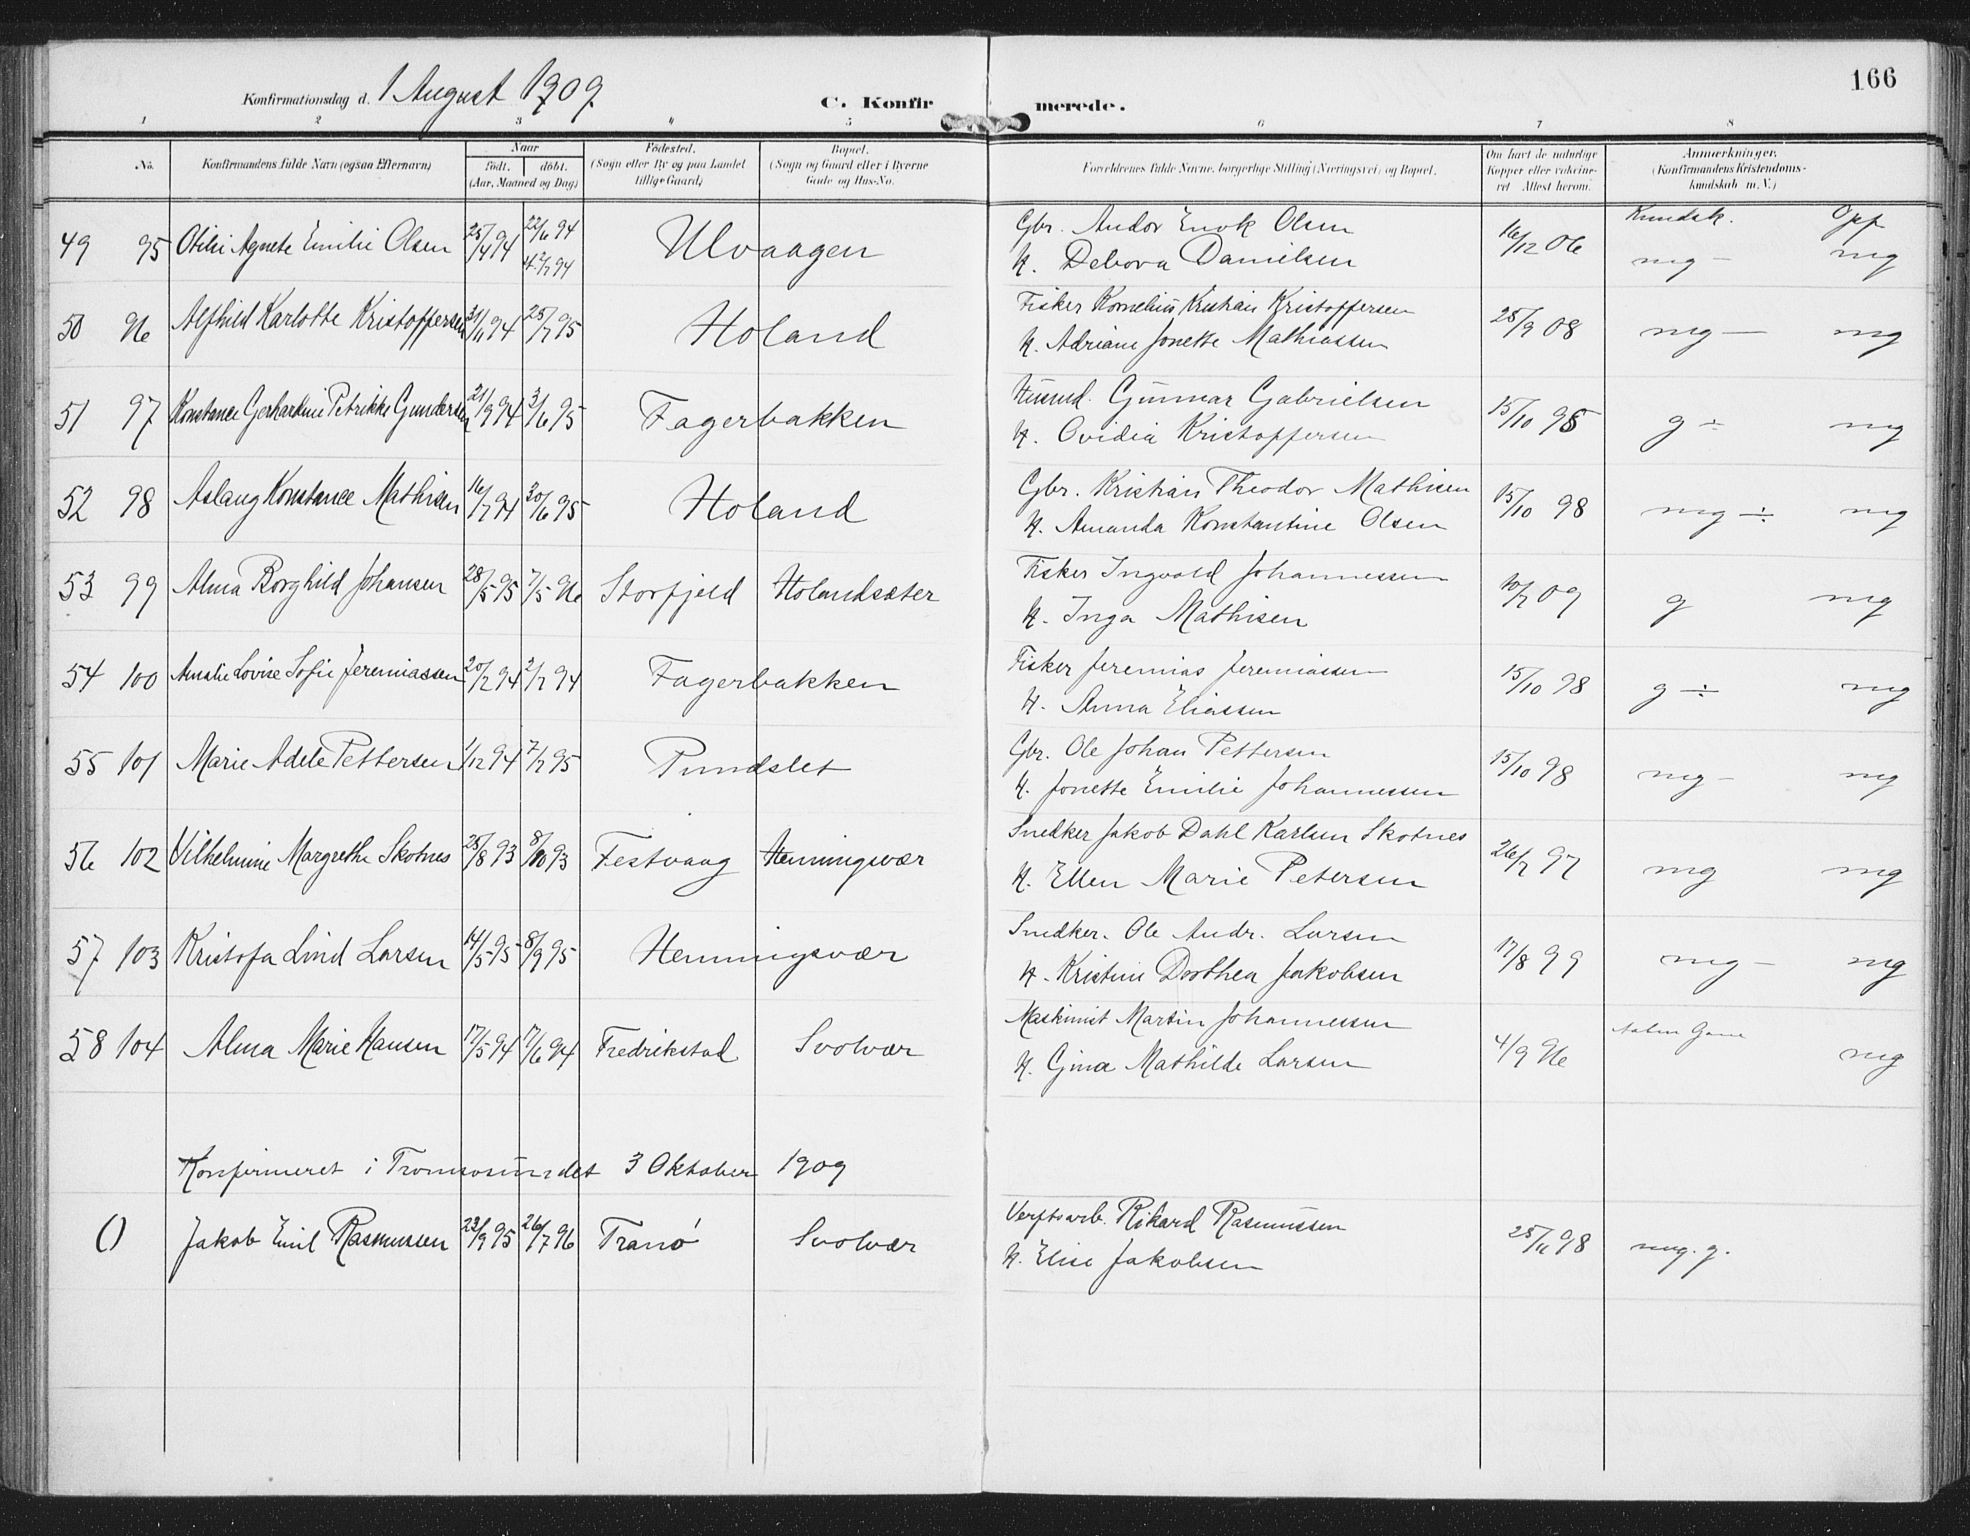 166
Konfirmationsdag d. 1 August 1909. C. Konfirmerede.
1 2 3 4 5 6 7 8
No. Konfirmandens fulde Navn (ogsaa Efternavn) Naar födt. döbt. (Aar, Maaned og Dag) Födested. (Sogn eller By og paa Landet tillige Gaard) Bopæl. (Sogn og Gaard eller i Byerne Gade og Hus-No. Forældrenes fulde Navne, borgerlige Stilling (Næringsvei) og Bopæl. Om havt de naturlige Kopper eller vakcineret. Attest herom. Anmærkninger. (Konfirmandens Kristendomskundskab m. V.)
Kundsk. Opf
49 95 Otilie Agnete Emilie Olsen 25/4 94 22/6 94 Ulvaagen Gbr. Andor Enok Olsen 16/12 06 mg – mg
H. Debora Danielsen
50 96 Alfhild Karlotte Kristoffersen 94 25/7 95 Holand Fisker Kornelius Kristian Kristoffersen 25/9 08 mg – mg
H. Adriane Jonette Mathiassen
51 97 Konstance Gerhardine Petrikke Gundersen 21/9 94 3/6 95 Fagerbakken Husmd. Gunnar Gabrielsen 15/10 98 g ÷ mg
H. Ovidia Kristoffersen
52 98 Aslaug Konstance Mathisen 16/7 94 30/6 95 Holand Gbr. Kristian Theodor Mathisen 15/10 98 mg ÷ mg
H. Amanda Konstantine Olsen
53 99 Alma Borghild Johansen 28/5 95 7/5 96 Storfjeld Holandsæter Fisker Ingvald Johannessen 10/7 09 g mg
H. Inga Mathisen
54 100 Amalie Lovise Sofie Jeremiassen 20/2 94 2/7 94 Fagerbakken Fisker Jeremias Jeremiassen 15/10 98 g ÷ mg
H. Anna Eliassen
55 101 Marie Adele Pettersen 1/12 94 7/7 95 Pundslet Gbr. Ole Johan Pettersen 15/10 98 mg – mg
H. Jonette Emilie Johannessen
56 102 Vilhelmine Margrethe Skotnes 25/8 93 8/10 93 Festvaag Henningsvær Snedker Jakob Dahl Karlsen Skotnes 26/7 97 mg mg
H. Ellen Marie Petersen
57 103 Kristofa Lind Larsen 14/5 95 8/9 95 Henningsvær Snedker. Ole Andr. Larsen 17/8 99 mg – mg
H. Kristine Dorthea Jakobsen
58 104 Alma Marie Hansen 17/5 94 17/6 94 Fredrikstad Svolvær Maskinist Martin Johannessen 4/9 96 mg
H. Gina Mathilde Larsen
Konfirmeret i Tromsosundet 3 Oktober 1909
() Jakob Emil Rasmussen 23/9 95 26/7 96 Tranö Svolvær Verftsarb. Rikard Rasmussen 25/11 98 mg. g.
H. Elise Jakobsen